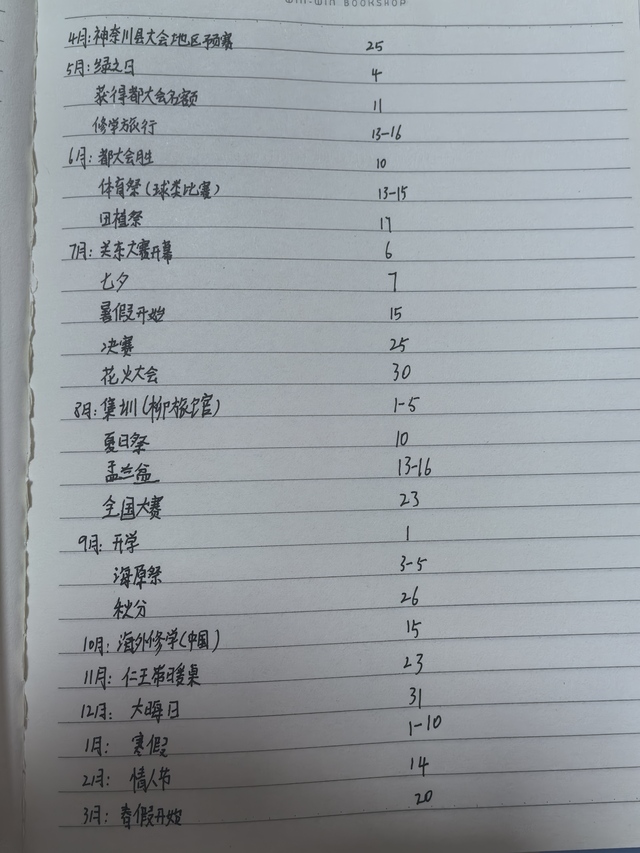 WIN-WIN BOOKSHOP
4月:神奈川县大会地区预赛 25
5月:绿之日 4
获得都大会名额 11
修学旅行 13-16
6月:都大会胜 10
体育祭(球类比赛) 13-15
田植祭 17
7月:关东大赛开幕 6
七夕 7
暑假开始 15
决赛 25
花火大会 30
8月:集训(柳旅馆) 1-5
夏日祭 10
盂兰盆 13-16
全国大赛 23
9月:开学 1
海原祭 3-5
秋分 26
10月:海外修学(中国) 15
11月:仁王带暖桌 23
12月:大晦日 31
1月:寒假 1-10
2月:情人节 14
3月:春假开始 20